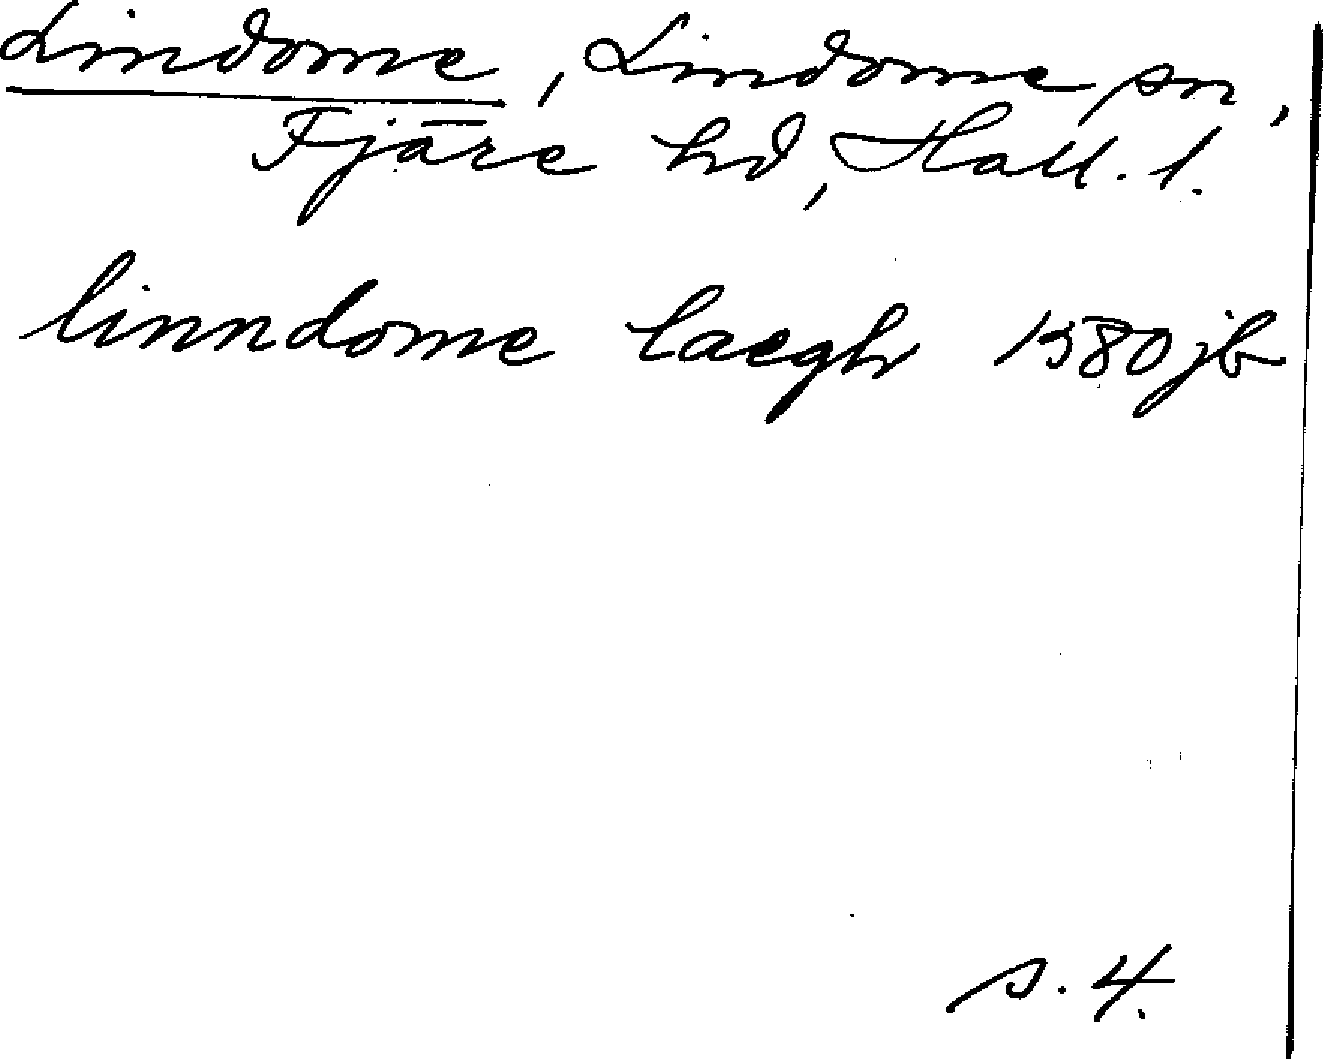 Lindome, Lindome sn,
Fjäre hd, Hall. l.
linndome laegh 1580 jb
s. 4.